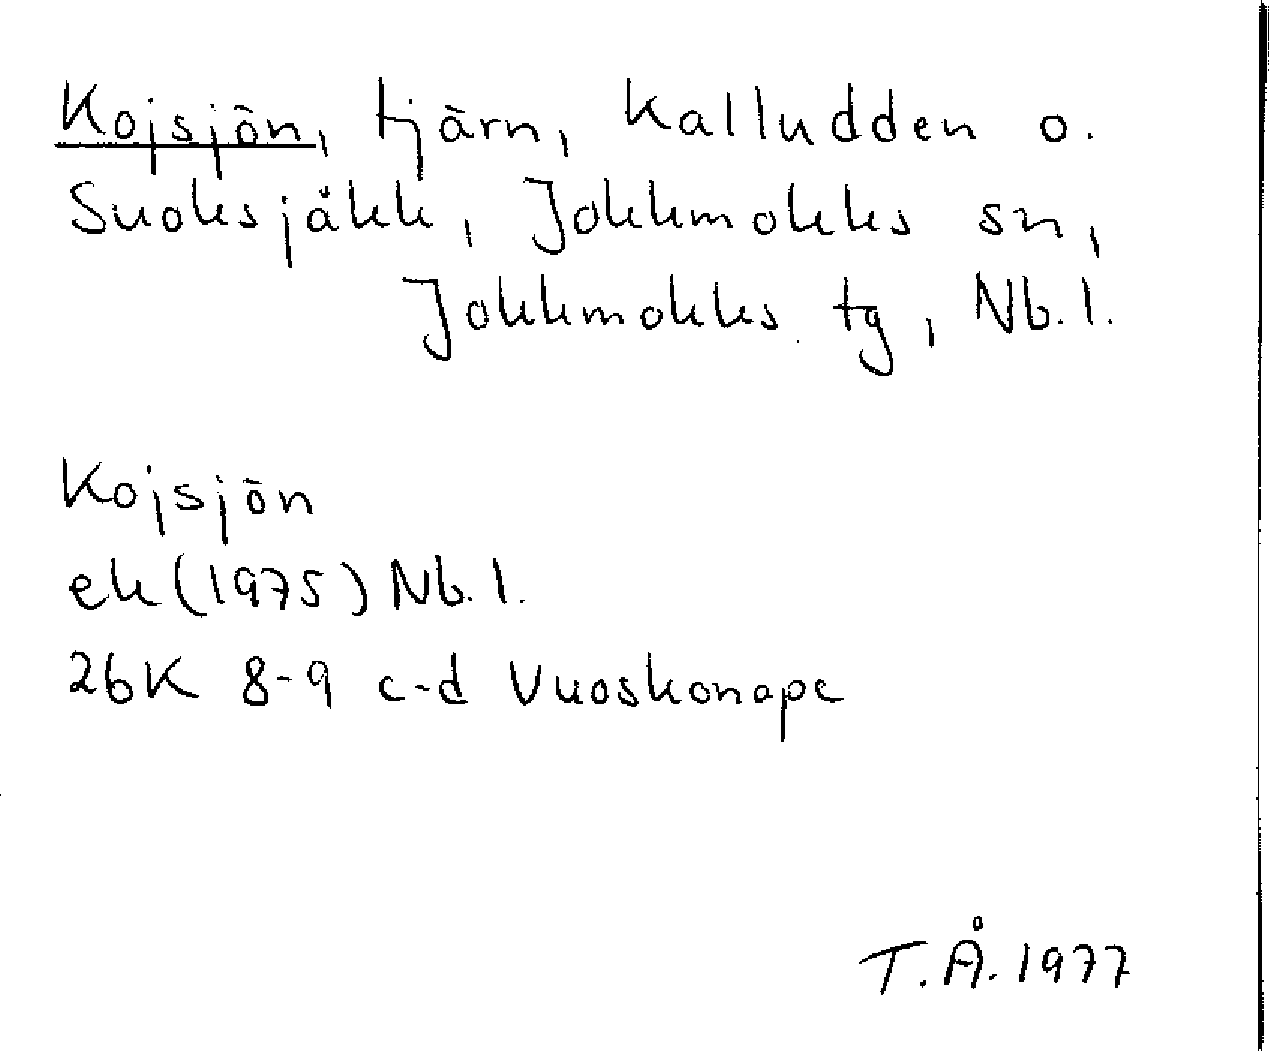 Kojsjön, tjärn, Kalludden o.
Suoksjåkk, Jokkmokks sn,
Jokkmokks tg, Nb.l.
Kojsjön
ek (1975) Nb.l.
26K 8-9 c-d Vuoskonape
T.Å. 1977